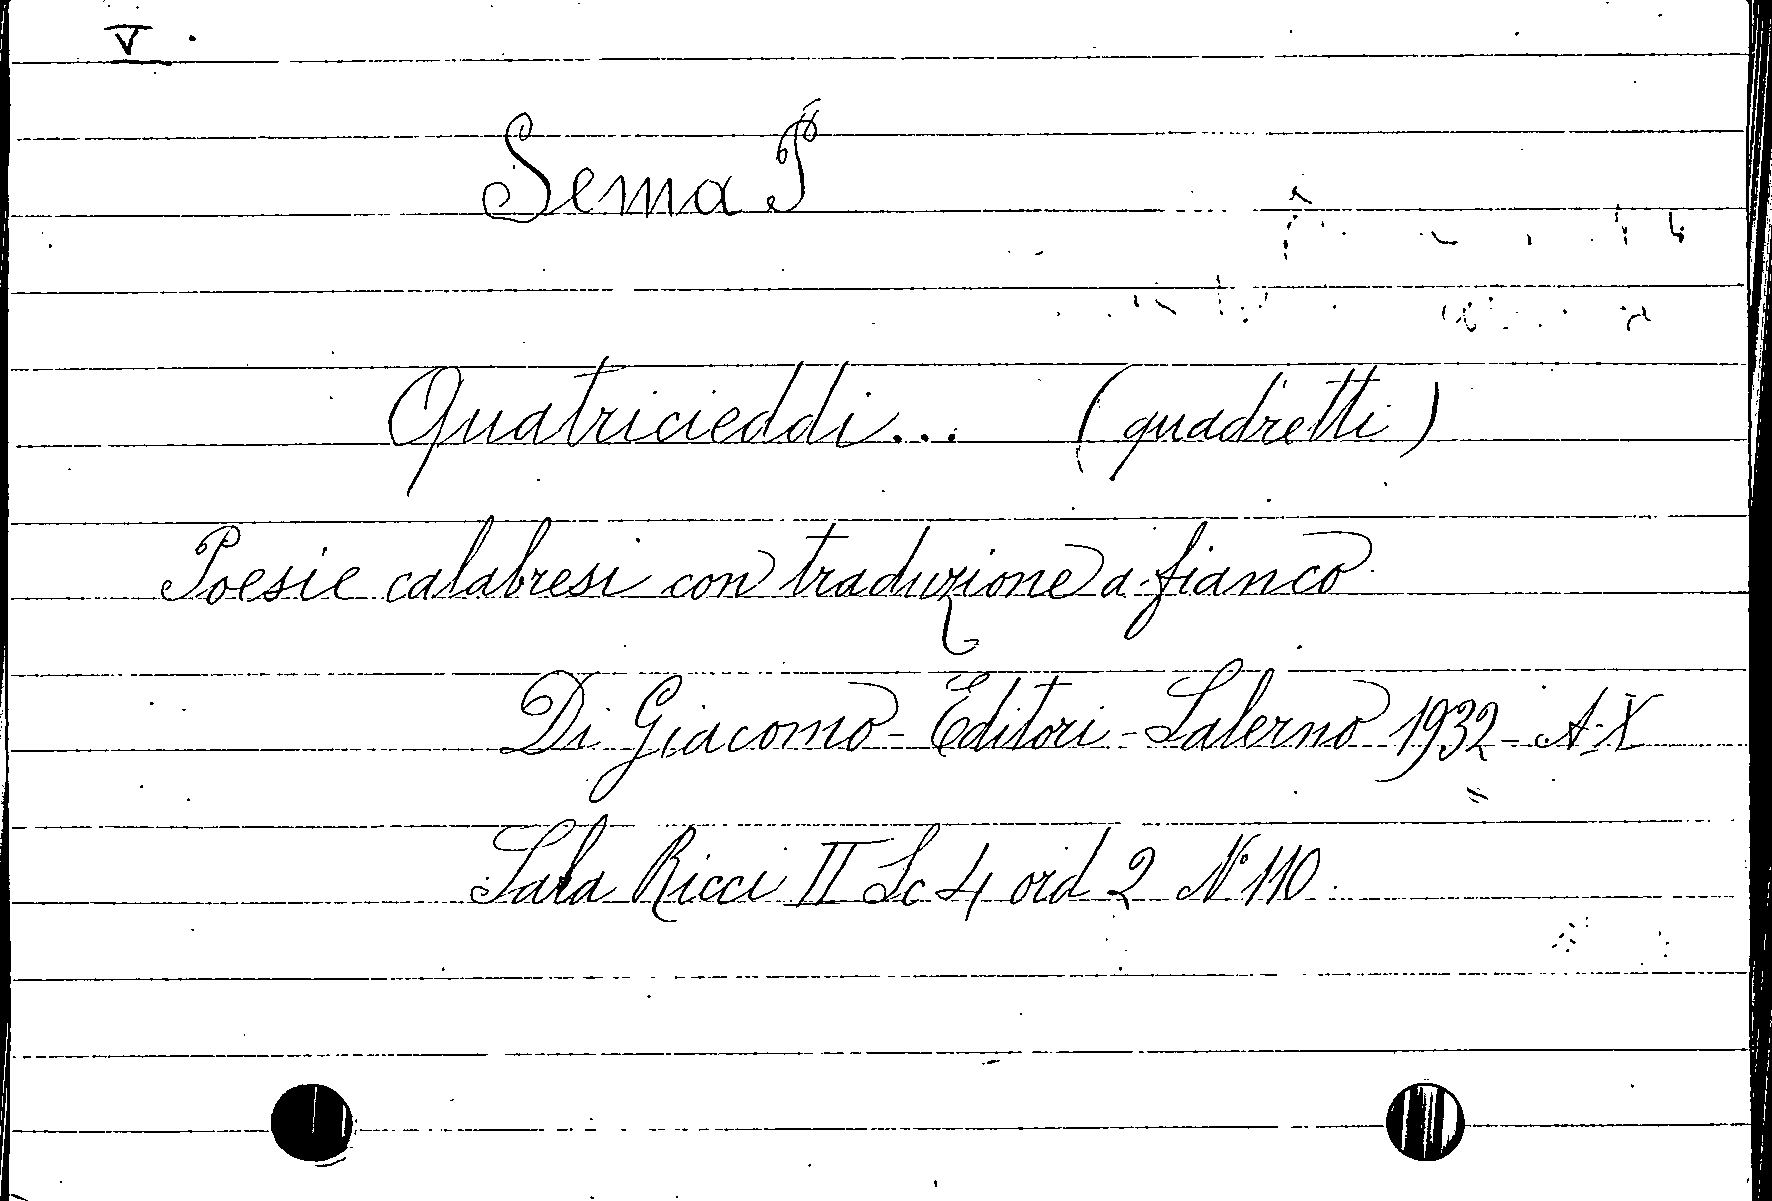 V.
Sema P
Quatricieddi... (quadretti)
Poesie calabresi con traduzione a fianco
Di Giacomo - Editori - Salerno 1932 - A. X
Sala Ricci II Sc 4 ord 2 N° 110.